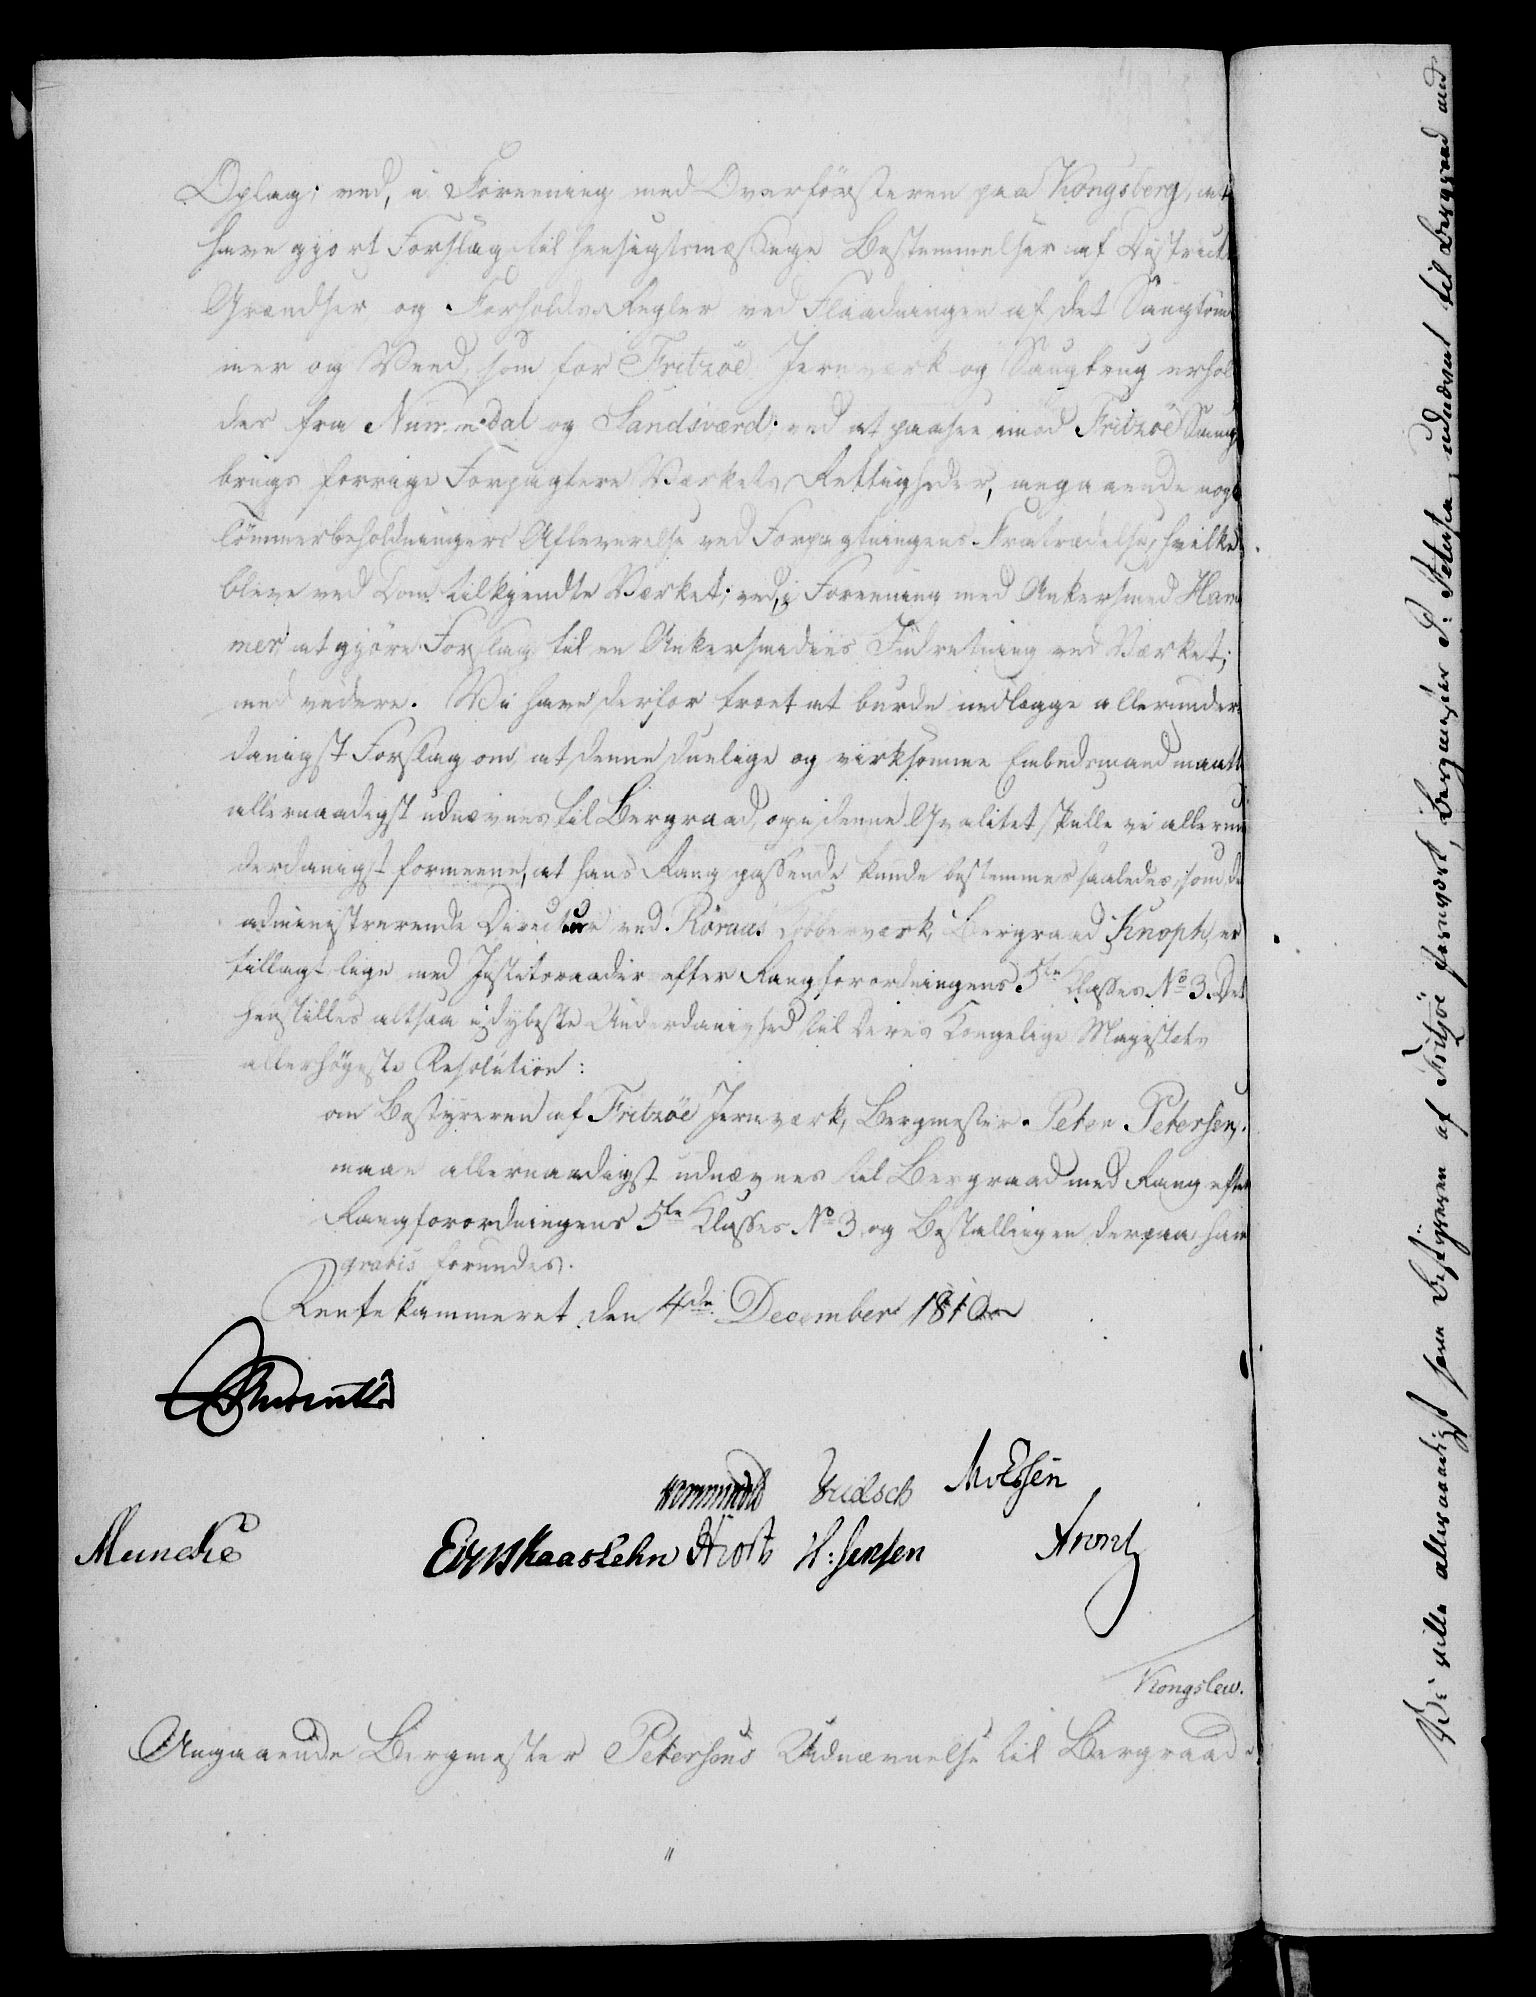 Oplag; ved, i Foreening med Overförsteren paa Kongsberg, at
have gjort Forslag til hensigtsmæssige Bestemmelser af District
Grændser og Forholds Regler ved Flaadningen af det Saugtöm
mer og Veed, som for Fritzöe Jernværk og Saugbrug erhol
des fra Numedal og Sandsværd; ved at paasee imod Fritzöe Saug
brugs forrige Forpagtere Værkets Rettigheder, angaaende nogle
Tömmerbeholdningers Afleverelse ved Forpagtningens Fratrædelse, hvilke
bleve ved Dom tilkjendte Værket; ved, i Foreening med Ankersmed Ham
mer at gjöre Forslag til en Ankersmedies Indretning ved Værket;
med videre. Vi have derfor troet at burde nedlægge allerunder
danigst Forslag om, at denne duelige og virksomme Embedsmand maatte
allernaadigst udnævnes til Bergraad, og i denne Qvalitet skulle vi allerun
derdanigst formeene, at hans Rang passende kunde bestemmes saaledes, som den
administrerende Directeur ved Röraas Kobberværk, Bergraad Knoph, er
tillagt lige med Justitsraader efter Rangforordningens 5te Classes No 3. Det
henstilles altsaa i dybeste Underdanighed til Deres Kongelige Majestæts
allerhöjeste Resolution:
om Bestyreren af Fritzöe Jernværk, Bergmester Peter Petersen,
maae allernaadigst udnævnes til Bergraad med Rang efter
Rangforordningens 5te Classes No 3 og Bestallingen derpaa ham
gratis forundes.
Rentekammeret den 4de December 1810
Wormskiold Hudsch M Essen
Muncke Eiler Kaas Lehn Hiort H: Jensen Arentz
Kongslew.
Angaaende Bergmester Petersens Udnævnelse til Bergraad.
Vi ville allernaadigst have Bestyreren af Fritzöe Jernværk, Bergmester P: Petersen, udnævnt til Bergraad med